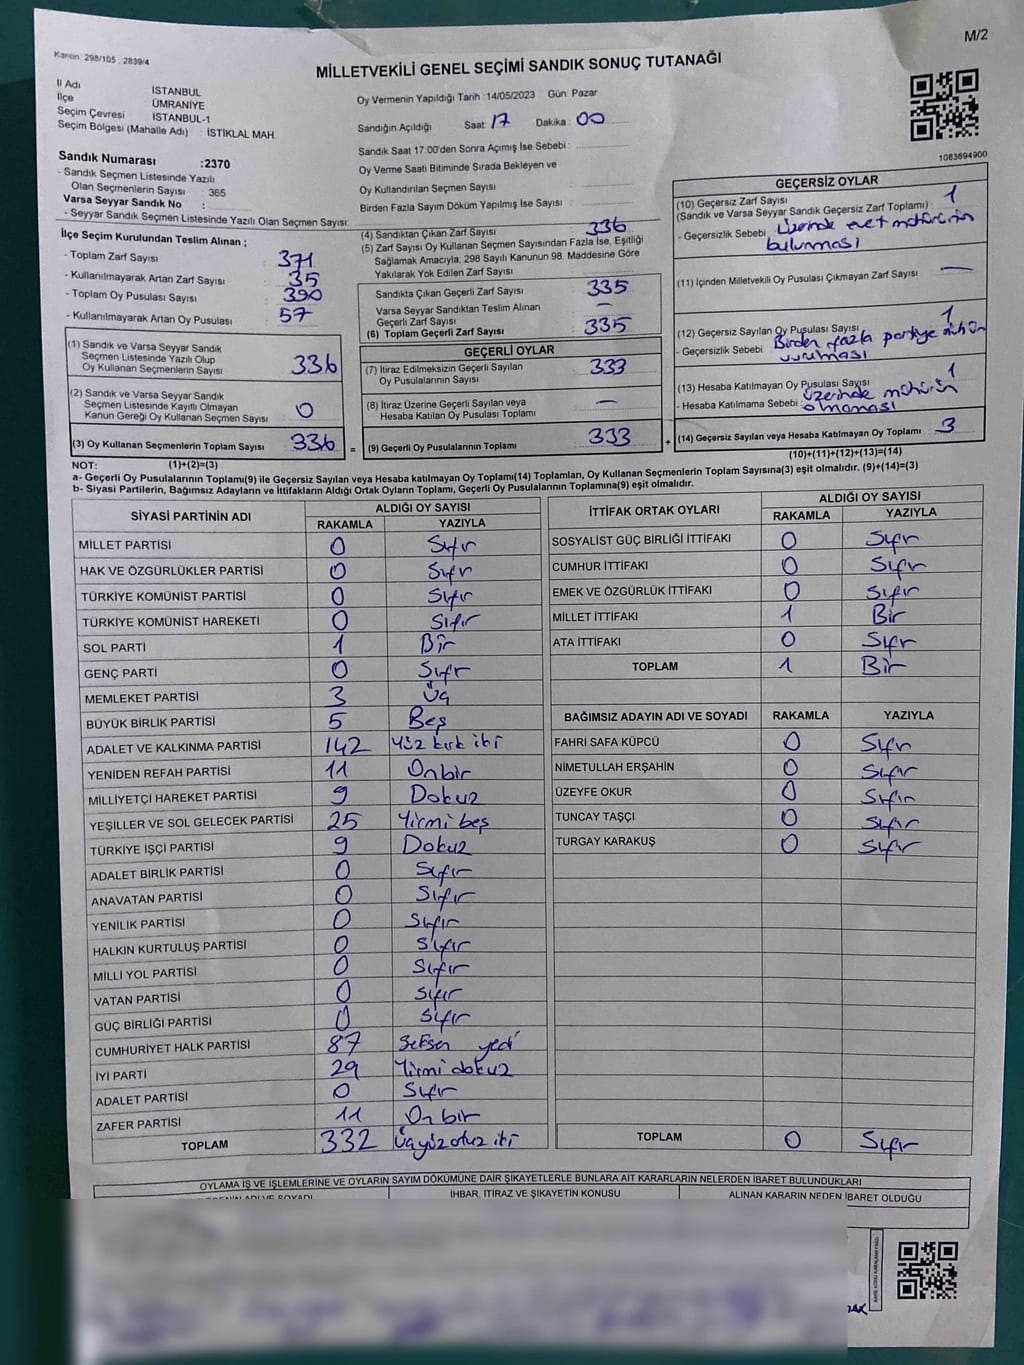 M/2
Kanun: 298/105 , 2839/4
MİLLETVEKİLİ GENEL SEÇİMİ SANDIK SONUÇ TUTANAĞI
İl Adı İSTANBUL
İlçe ÜMRANİYE
Seçim Çevresi İSTANBUL-1
Seçim Bölgesi (Mahalle Adı) : İSTİKLAL MAH.
Oy Vermenin Yapıldığı Tarih :14/05/2023 Gün: Pazar
Sandığın Açıldığı Saat: 17 Dakika : 00
Sandık Saat 17:00'den Sonra Açımış İse Sebebi :
Oy Verme Saati Bitiminde Sırada Bekleyen ve
Oy Kullandırılan Seçmen Sayısı
Birden Fazla Sayım Döküm Yapılmış İse Sayısı :
1083694900
Sandık Numarası :2370
- Sandık Seçmen Listesinde Yazılı
Olan Seçmenlerin Sayısı : 365
Varsa Seyyar Sandık No :
- Seyyar Sandık Seçmen Listesinde Yazılı Olan Seçmen Sayısı:
İlçe Seçim Kurulundan Teslim Alınan ;
- Toplam Zarf Sayısı : 371
- Kullanılmayarak Artan Zarf Sayısı : 35
- Toplam Oy Pusulası Sayısı : 390
- Kullanılmayarak Artan Oy Pusulası : 57
(1) Sandık ve Varsa Seyyar Sandık
Seçmen Listesinde Yazılı Olup
Oy Kullanan Seçmenlerin Sayısı 336
(2) Sandık ve Varsa Seyyar Sandık
Seçmen Listesinde Kayıtlı Olmayan
Kanun Gereği Oy Kullanan Seçmen Sayısı 0
(3) Oy Kullanan Seçmenlerin Toplam Sayısı 336
(4) Sandıktan Çıkan Zarf Sayısı 336
(5) Zarf Sayısı Oy Kullanan Seçmen Sayısından Fazla İse, Eşitliği
Sağlamak Amacıyla; 298 Sayılı Kanunun 98. Maddesine Göre
Yakılarak Yok Edilen Zarf Sayısı
Sandıkta Çıkan Geçerli Zarf Sayısı 335
Varsa Seyyar Sandıktan Teslim Alınan
Geçerli Zarf Sayısı —
(6) Toplam Geçerli Zarf Sayısı 335
GEÇERLİ OYLAR
(7) İtiraz Edilmeksizin Geçerli Sayılan
Oy Pusulalarının Sayısı 333
(8) İtiraz Üzerine Geçerli Sayılan veya
Hesaba Katılan Oy Pusulası Toplamı —
= (9) Geçerli Oy Pusulalarının Toplamı 333 +
GEÇERSİZ OYLAR
(10) Geçersiz Zarf Sayısı 1
(Sandık ve Varsa Seyyar Sandık Geçersiz Zarf Toplamı)
- Geçersizlik Sebebi : Üzerinde evet mührünün
bulunması
(11) İçinden Milletvekili Oy Pusulası Çıkmayan Zarf Sayısı —
(12) Geçersiz Sayılan Oy Pusulası Sayısı 1
- Geçersizlik Sebebi : Birden fazla partiye mühür
vurulması
(13) Hesaba Katılmayan Oy Pusulası Sayısı 1
- Hesaba Katılmama Sebebi : Üzerinde mührün
olmaması
(14) Geçersiz Sayılan veya Hesaba Katılmayan Oy Toplamı 3
(10)+(11)+(12)+(13)=(14)
NOT: (1)+(2)=(3)
a- Geçerli Oy Pusulalarının Toplamı(9) ile Geçersiz Sayılan veya Hesaba katılmayan Oy Toplamı(14) Toplamları, Oy Kullanan Seçmenlerin Toplam Sayısına(3) eşit olmalıdır. (9)+(14)=(3)
b- Siyasi Partilerin, Bağımsız Adayların ve İttifakların Aldığı Ortak Oyların Toplamı, Geçerli Oy Pusulalarının Toplamına(9) eşit olmalıdır.
SİYASİ PARTİNİN ADI ALDIĞI OY SAYISI
RAKAMLA YAZIYLA
MİLLET PARTİSİ 0 Sıfır
HAK VE ÖZGÜRLÜKLER PARTİSİ 0 Sıfır
TÜRKİYE KOMÜNİST PARTİSİ 0 Sıfır
TÜRKİYE KOMÜNİST HAREKETİ 0 Sıfır
SOL PARTİ 1 Bir
GENÇ PARTİ 0 Sıfır
MEMLEKET PARTİSİ 3 Üç
BÜYÜK BİRLİK PARTİSİ 5 Beş
ADALET VE KALKINMA PARTİSİ 142 Yüz kırk iki
YENİDEN REFAH PARTİSİ 11 Onbir
MİLLİYETÇİ HAREKET PARTİSİ 9 Dokuz
YEŞİLLER VE SOL GELECEK PARTİSİ 25 Yirmi beş
TÜRKİYE İŞÇİ PARTİSİ 9 Dokuz
ADALET BİRLİK PARTİSİ 0 Sıfır
ANAVATAN PARTİSİ 0 Sıfır
YENİLİK PARTİSİ 0 Sıfır
HALKIN KURTULUŞ PARTİSİ 0 Sıfır
MİLLİ YOL PARTİSİ 0 Sıfır
VATAN PARTİSİ 0 Sıfır
GÜÇ BİRLİĞİ PARTİSİ 0 Sıfır
CUMHURİYET HALK PARTİSİ 87 Seksen yedi
İYİ PARTİ 29 Yirmi dokuz
ADALET PARTİSİ 0 Sıfır
ZAFER PARTİSİ 11 Onbir
TOPLAM 332 Üçyüz otuz iki
İTTİFAK ORTAK OYLARI ALDIĞI OY SAYISI
RAKAMLA YAZIYLA
SOSYALİST GÜÇ BİRLİĞİ İTTİFAKI 0 Sıfır
CUMHUR İTTİFAKI 0 Sıfır
EMEK VE ÖZGÜRLÜK İTTİFAKI 0 Sıfır
MİLLET İTTİFAKI 1 Bir
ATA İTTİFAKI 0 Sıfır
TOPLAM 1 Bir
BAĞIMSIZ ADAYIN ADI VE SOYADI RAKAMLA YAZIYLA
FAHRİ SAFA KÜPCÜ 0 Sıfır
NİMETULLAH ERŞAHİN 0 Sıfır
ÜZEYFE OKUR 0 Sıfır
TUNCAY TAŞÇI 0 Sıfır
TURGAY KARAKUŞ 0 Sıfır
TOPLAM 0 Sıfır
OYLAMA İŞ VE İŞLEMLERİNE VE OYLARIN SAYIM DÖKÜMÜNE DAİR ŞİKAYETLERLE BUNLARA AİT KARARLARIN NELERDEN İBARET BULUNDUKLARI
ADI VE SOYADI İHBAR, İTİRAZ VE ŞİKAYETİN KONUSU ALINAN KARARIN NEDEN İBARET OLDUĞU